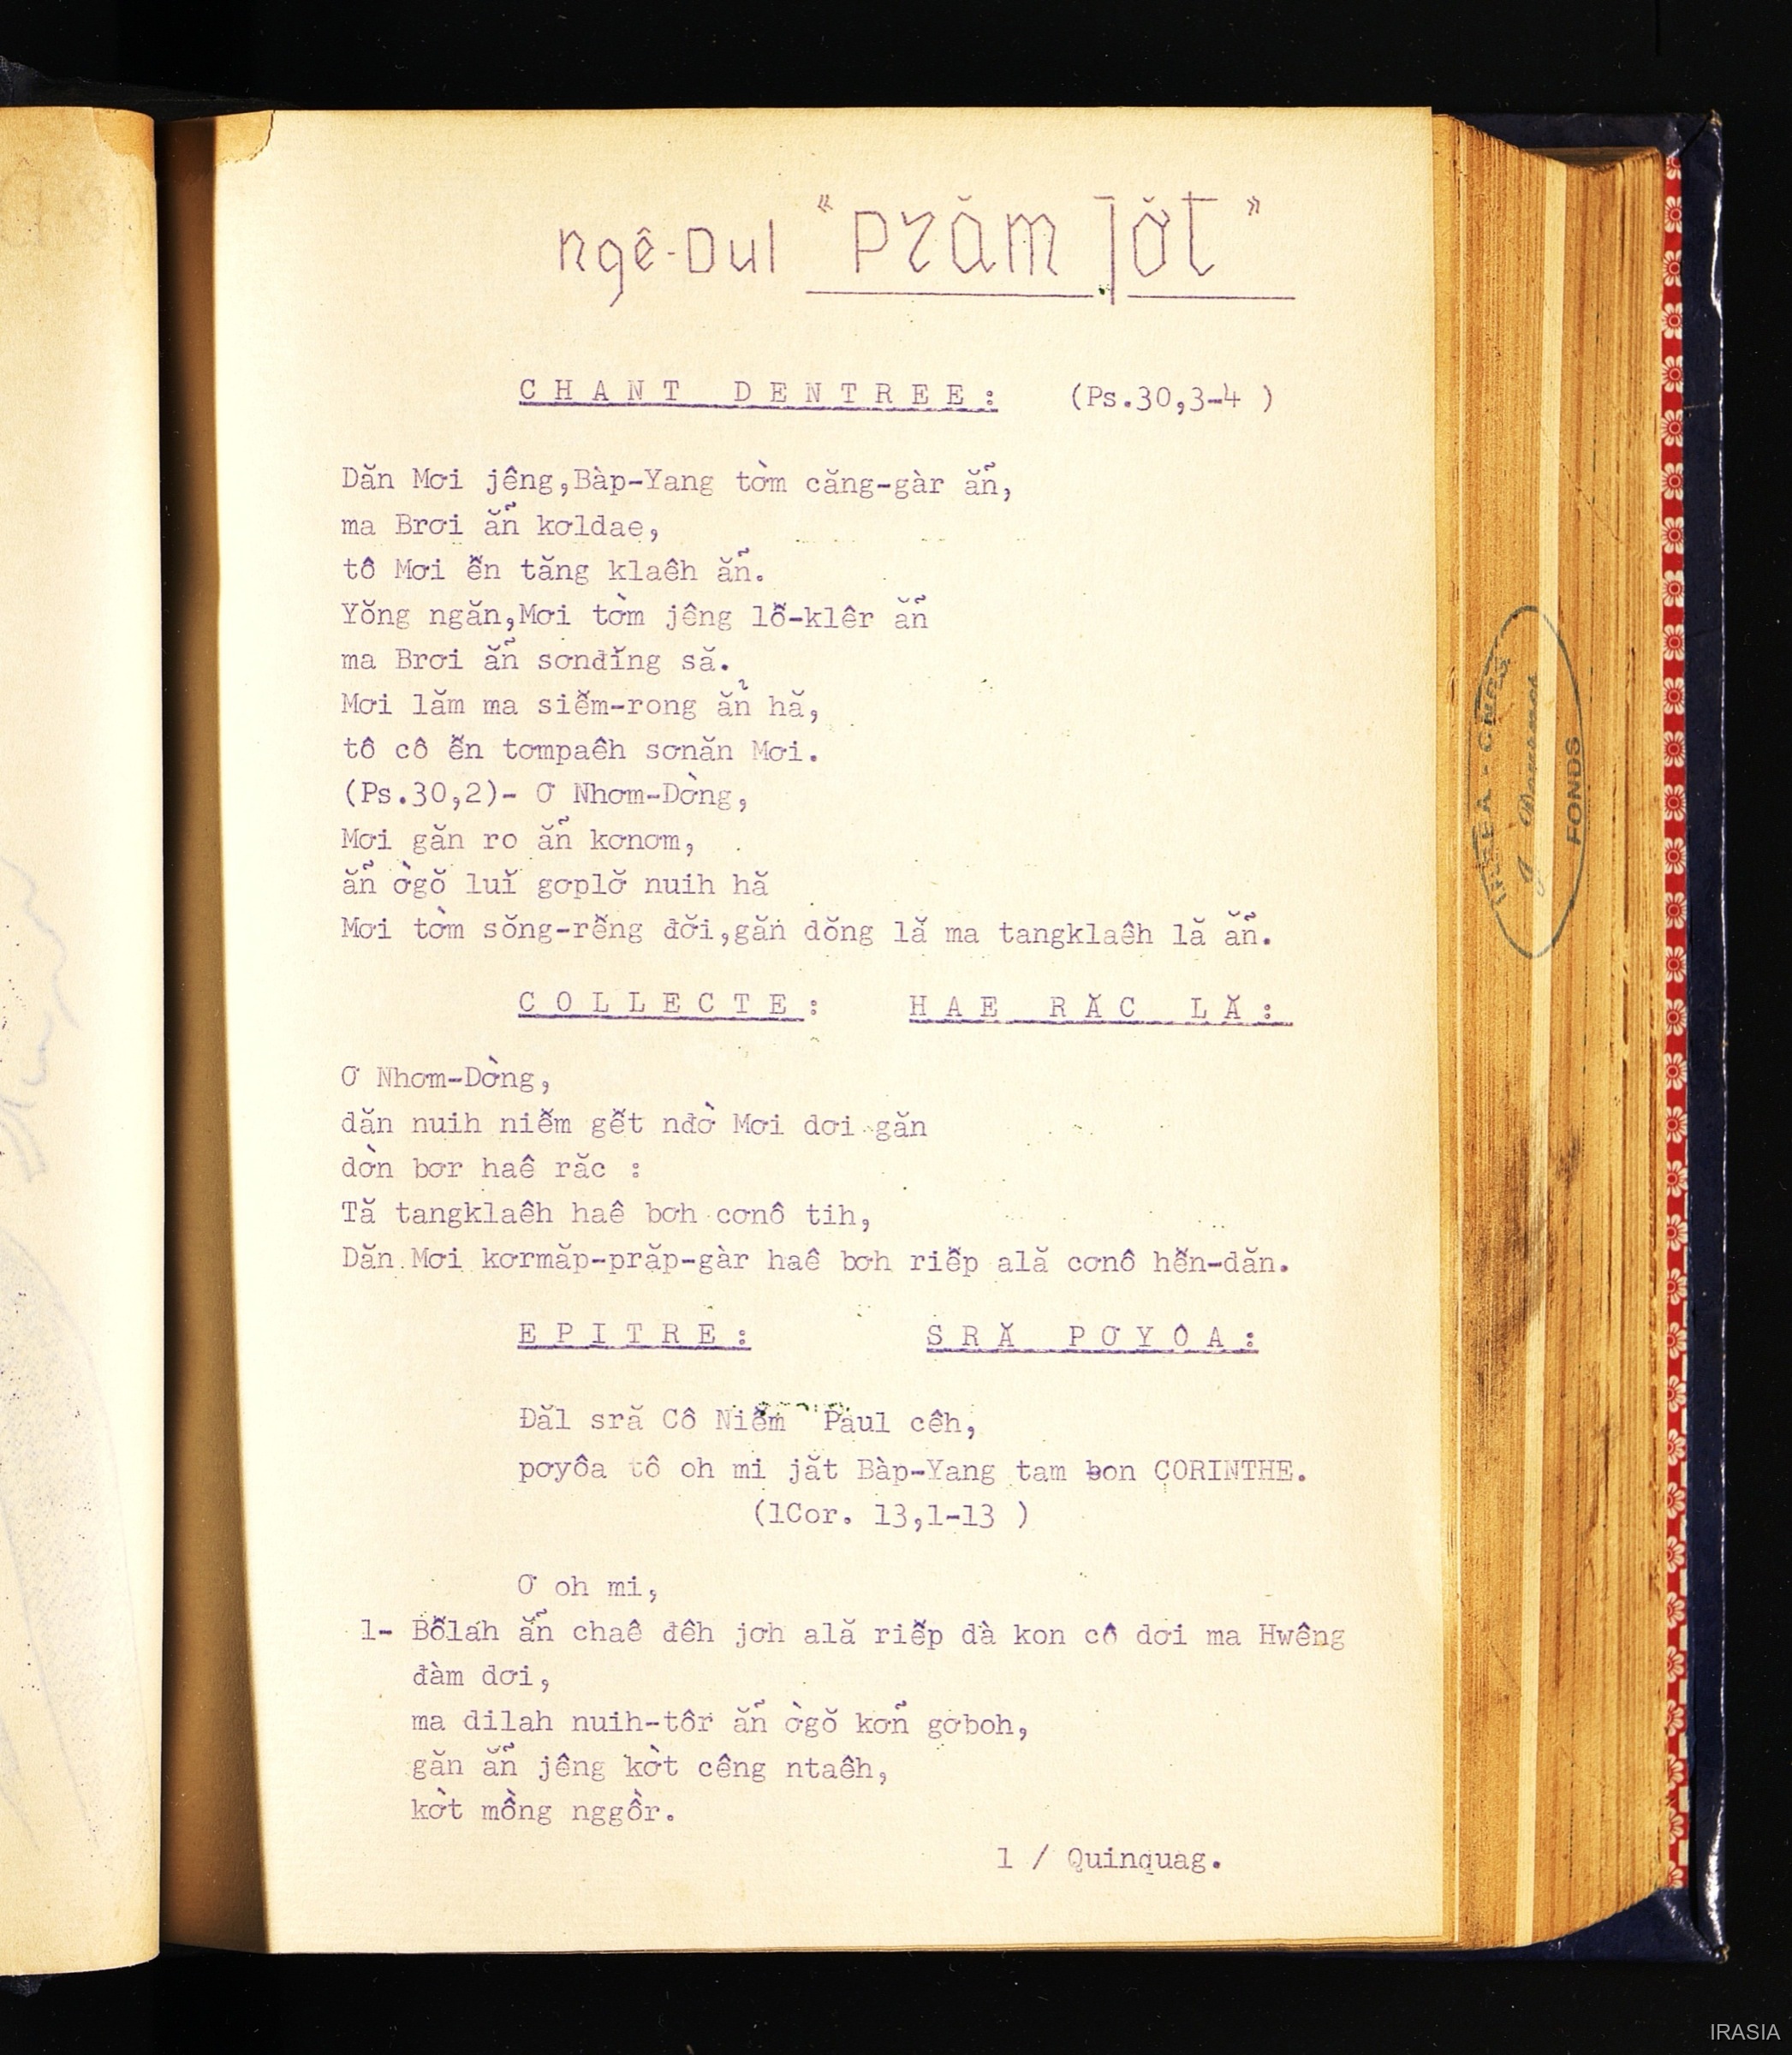 Ngê-Dul "Prăm Jơ̆t"
CHANT DENTREE: (Ps.30,3-4 )
Dăn Mơi jêng,Bàp-Yang tờm căng-gàr ăñ,
ma Brơi ăñ kơldae,
tô Mơi ê̆n tăng klaêh ăñ.
Yŏng ngăn,Mơi tờm jêng lô̆-klêr ăñ
ma Brơi ăñ sơnđĭng să.
Mơi lăm ma siê̆m-rong ăñ hă,
tô cô ê̆n tơmpaêh sơnăn Mơi.
(Ps.30,2)- Ơ Nhơm-Dờng,
Mơi găn ro ăñ kơnơm,
ăñ ờgŏ luĭ gơplơ̆ nuih hă
Mơi tờm sŏng-rê̆ng đơ̆i,găn dŏng lă ma tangklaêh lă ăñ.
COLLECTE: HAE RĂC LĂ:
Ơ Nhơm-Dờng,
dăn nuih niê̆m gê̆t nđờ Mơi dơi găn
dờn bơr haê răc :
Tă tangklaêh haê bơh cơnô tih,
Dăn Mơi kơrmăp-prăp-gàr haê bơh riê̆p ală cơnô hê̆n-dăn.
EPITRE: SRĂ PƠYÔA:
Đăl sră Cô Niê̆m Paul cêh,
pơyôa tô oh mi jăt Bàp-Yang tam bon CORINTHE.
(1Cor. 13,1-13 )
Ơ oh mi,
1- Bô̆lah ăñ chaê đêh jơh ală riê̆p dà kon cô dơi ma Hwêng
đàm dơi,
ma dilah nuih-tôr ăñ ờgŏ kơñ gơboh,
găn ăñ jêng kờt cêng ntaêh,
kờt mồng nggồr.
1 / Quinquag.
FONDS
IRASIA